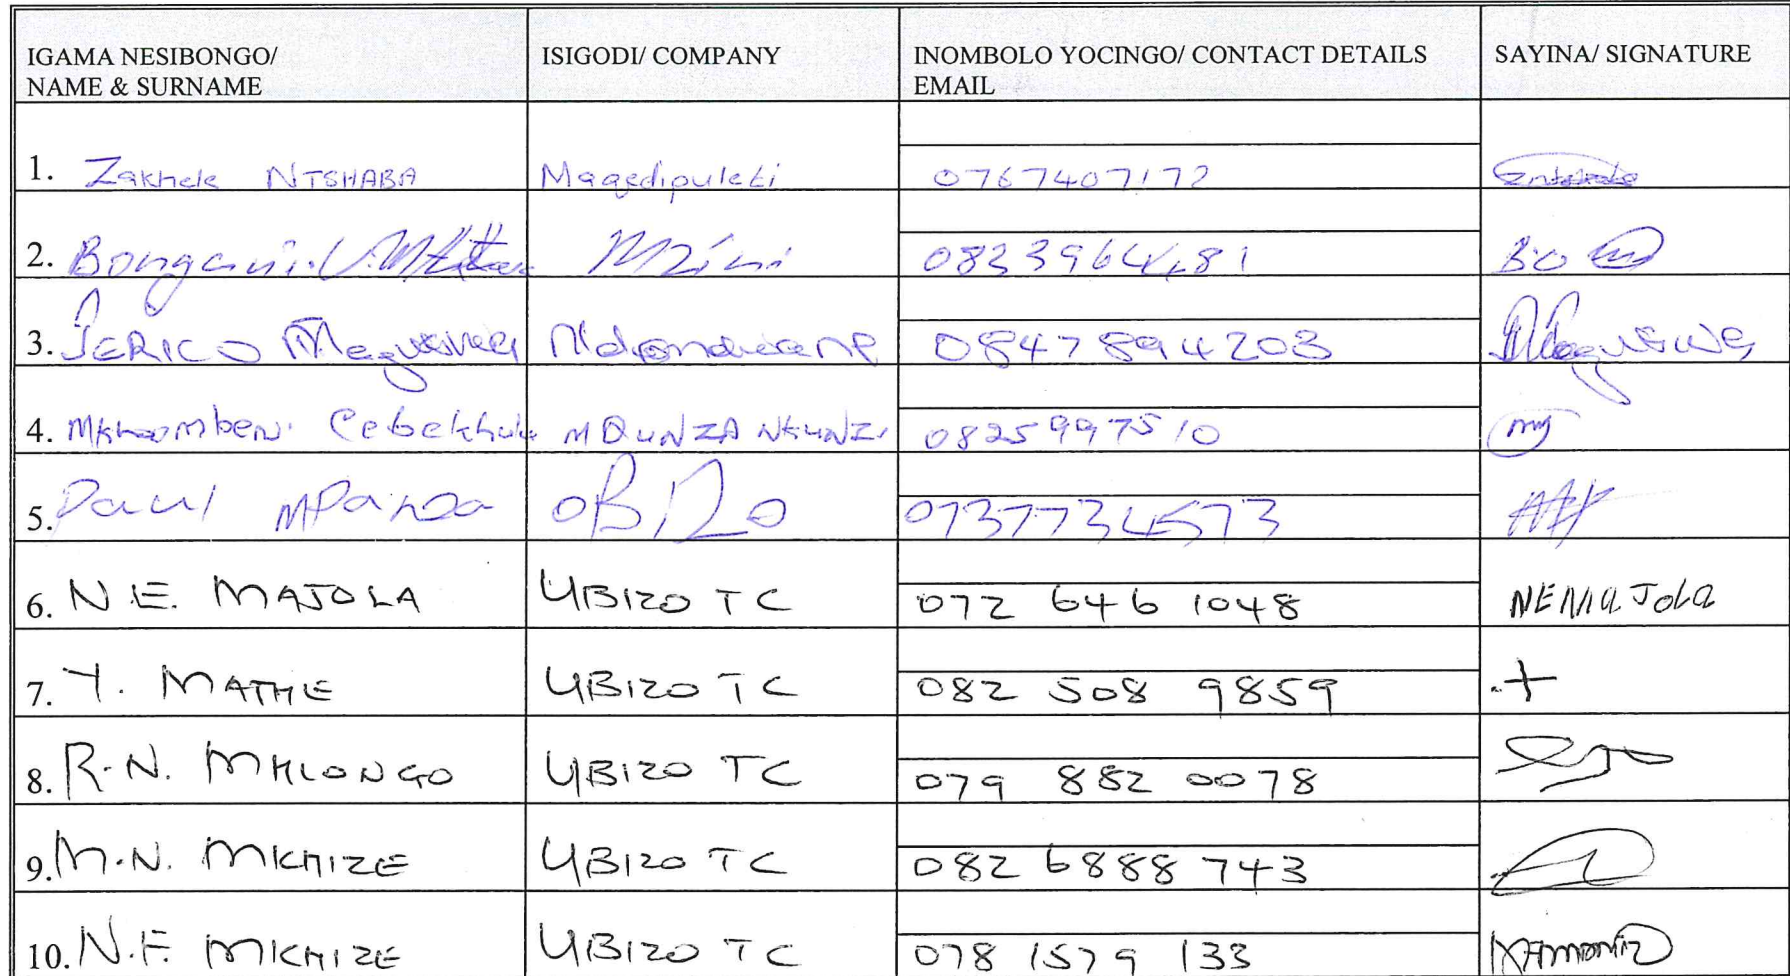 IGAMA NESIBONGO/ ISIGODI/ COMPANY INOMBOLO YOCINGO/ CONTACT DETAILS SAYINA/ SIGNATURE
NAME & SURNAME EMAIL
1. Zakhele NTSHABA Magedipuleti 0767407172
2. Bongani Mzini 0833964481
3. JERICO 0847894203
4. Cebekhulu MQUNZANKUNZI 0825997510
5. Paul MPanza OBIZO 0737734573
6. N.E. MAJOLA UBIZO TC 072 646 1048 NEMaJola
7. Y. MATHE UBIZO TC 082 508 9859 +
8. R.N. MHLONGO UBIZO TC 079 882 0078
9. M.N. MKHIZE UBIZO TC 082 6888 743
10. N.F. MKHIZE UBIZO TC 078 1579 133